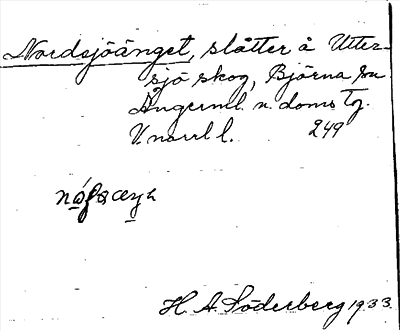 Nordsjöänget, slåtter å Utter-
sjö skog, Björna sn
Ångerml. n. doms Tg.
V. norrl l. 249
H A Söderberg 1933.